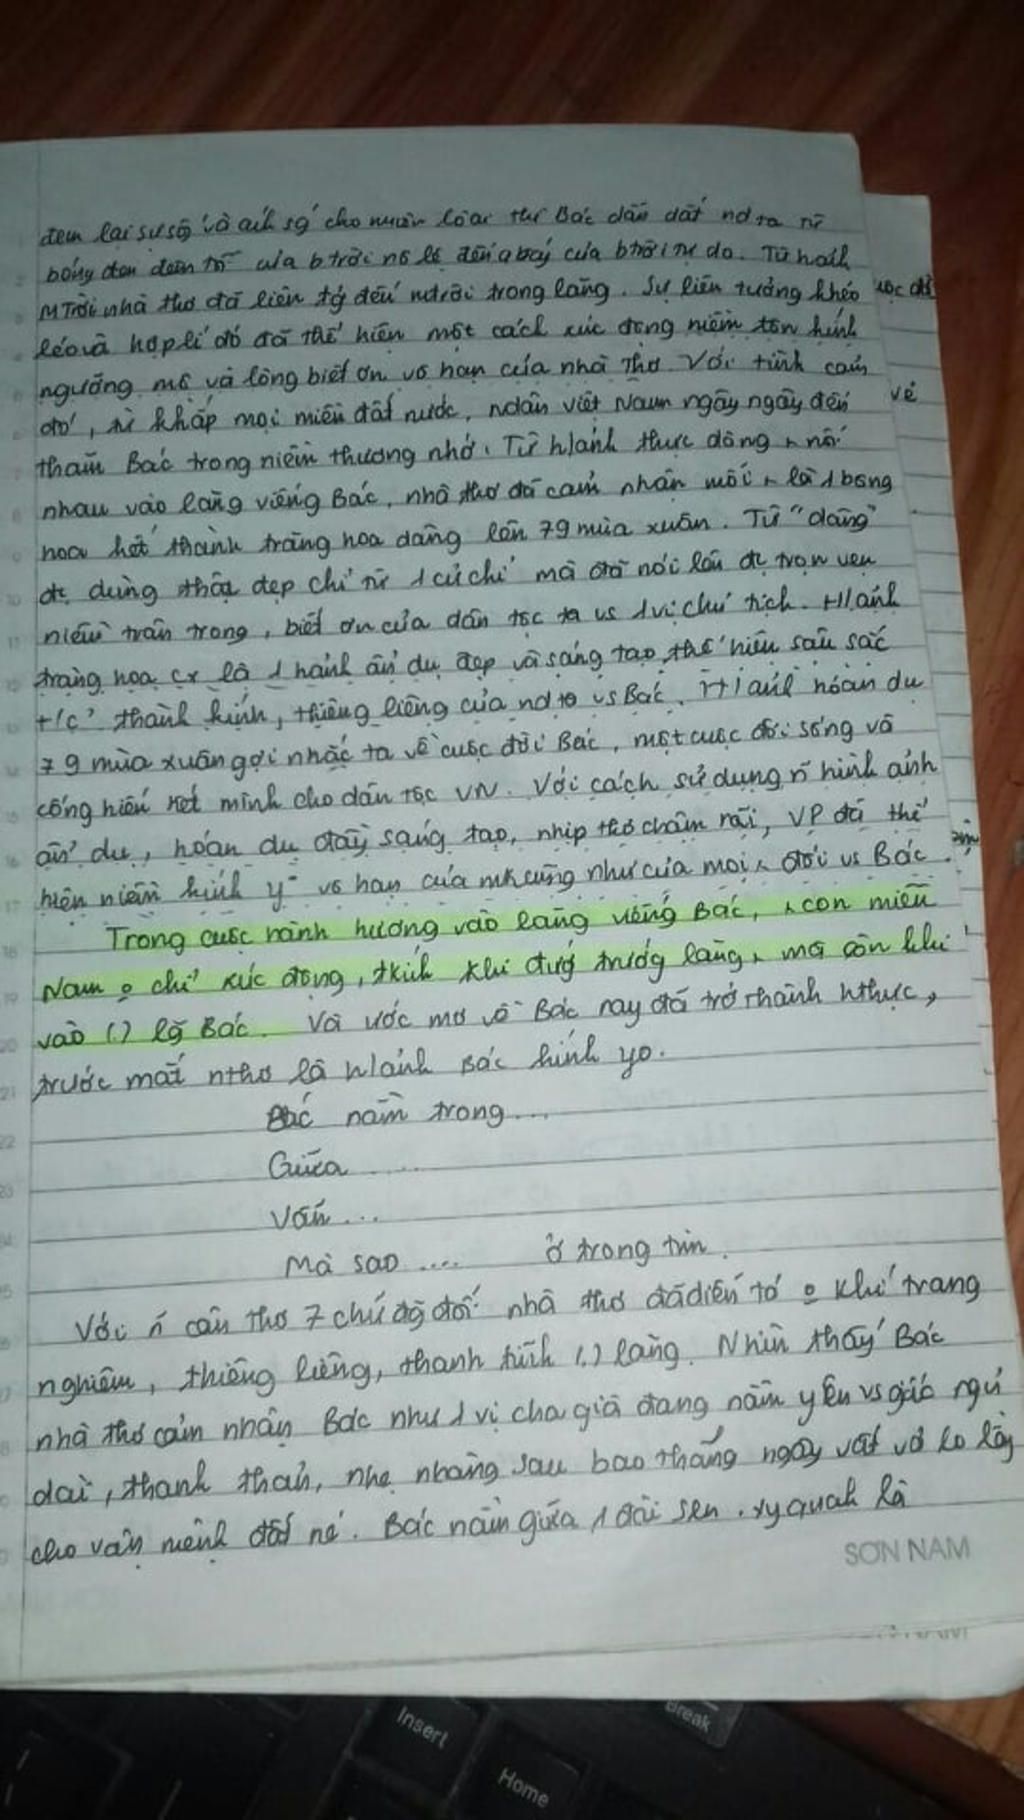 đem lại sự số và ánh sg cho muôn loài thì Bác dẫn dắt nd ta từ
bóng đen đêm tối của btrời nô lệ đến ánh sáng của btrời tự do. Từ hảnh
MTrời nhà thơ đã liên tg đến người trong lăng. Sự liên tưởng khéo
léo và hợp lí đó đã thể hiện một cách xúc động niềm tôn kính
ngưỡng mộ và lòng biết ơn vô hạn của nhà thơ. Với tình cảm
đó, từ khắp mọi miền đất nước, ndân việt Nam ngày ngày đến
thăm Bác trong niềm thương nhớ. Từ h/ảnh thực dòng nối
nhau vào lăng viếng Bác, nhà thơ đã cảm nhận mỗi là 1 bông
hoa kết thành tràng hoa dâng lên 79 mùa xuân. Từ "dâng"
đc dùng thật đẹp chỉ từ 1 cử chỉ mà đã nói lên đc trọn vẹn
niềm trân trọng, biết ơn của dân tộc ta vs 1 vị chủ tịch. H/ảnh
tràng hoa cx là 1 h/ảnh ẩn dụ đẹp và sáng tạo thể hiện sâu sắc
t/c' thành kính, thiêng liêng của nd ta vs Bác. H/ảnh hoán dụ
79 mùa xuân gợi nhắc ta về cuộc đời Bác, một cuộc đời sống và
cống hiến hết mình cho dân tộc VN. Với cách sử dụng n~ hình ảnh
ẩn dụ, hoán dụ đầy sáng tạo, nhịp thơ chậm rãi, VP đã thể
hiện niềm kính y vô hạn của mk cũng như của mọi đối vs Bác.
Trong cuộc hành hương vào lăng viếng Bác, con miền
Nam o chỉ xúc động, thkính khi đứg trướg lăng, mà còn khi
vào (.) lg Bác. Và ước mơ về Bác nay đã trở thành hthực,
trước mắt nthơ là h/ảnh Bác kính yo.
Bác nằm trong...
Giữa.....
Vẫn...
Mà sao .... ở trong tim.
Với n~ câu thơ 7 chữ đg đối nhà thơ đã diễn tả o khí trang
nghiêm, thiêng liêng, thanh tĩnh (.) lăng. Nhìn thấy Bác
nhà thơ cảm nhận Bác như 1 vị cha già đang nằm yên vs giấc ngủ
dài, thanh thản, nhẹ nhàng sau bao tháng ngày vất vả lo lắg
cho vận mệnh đất nc. Bác nằm giữa 1 đài sen. xy quanh là
SƠN NAM
ước
về
Insert
Home
Break